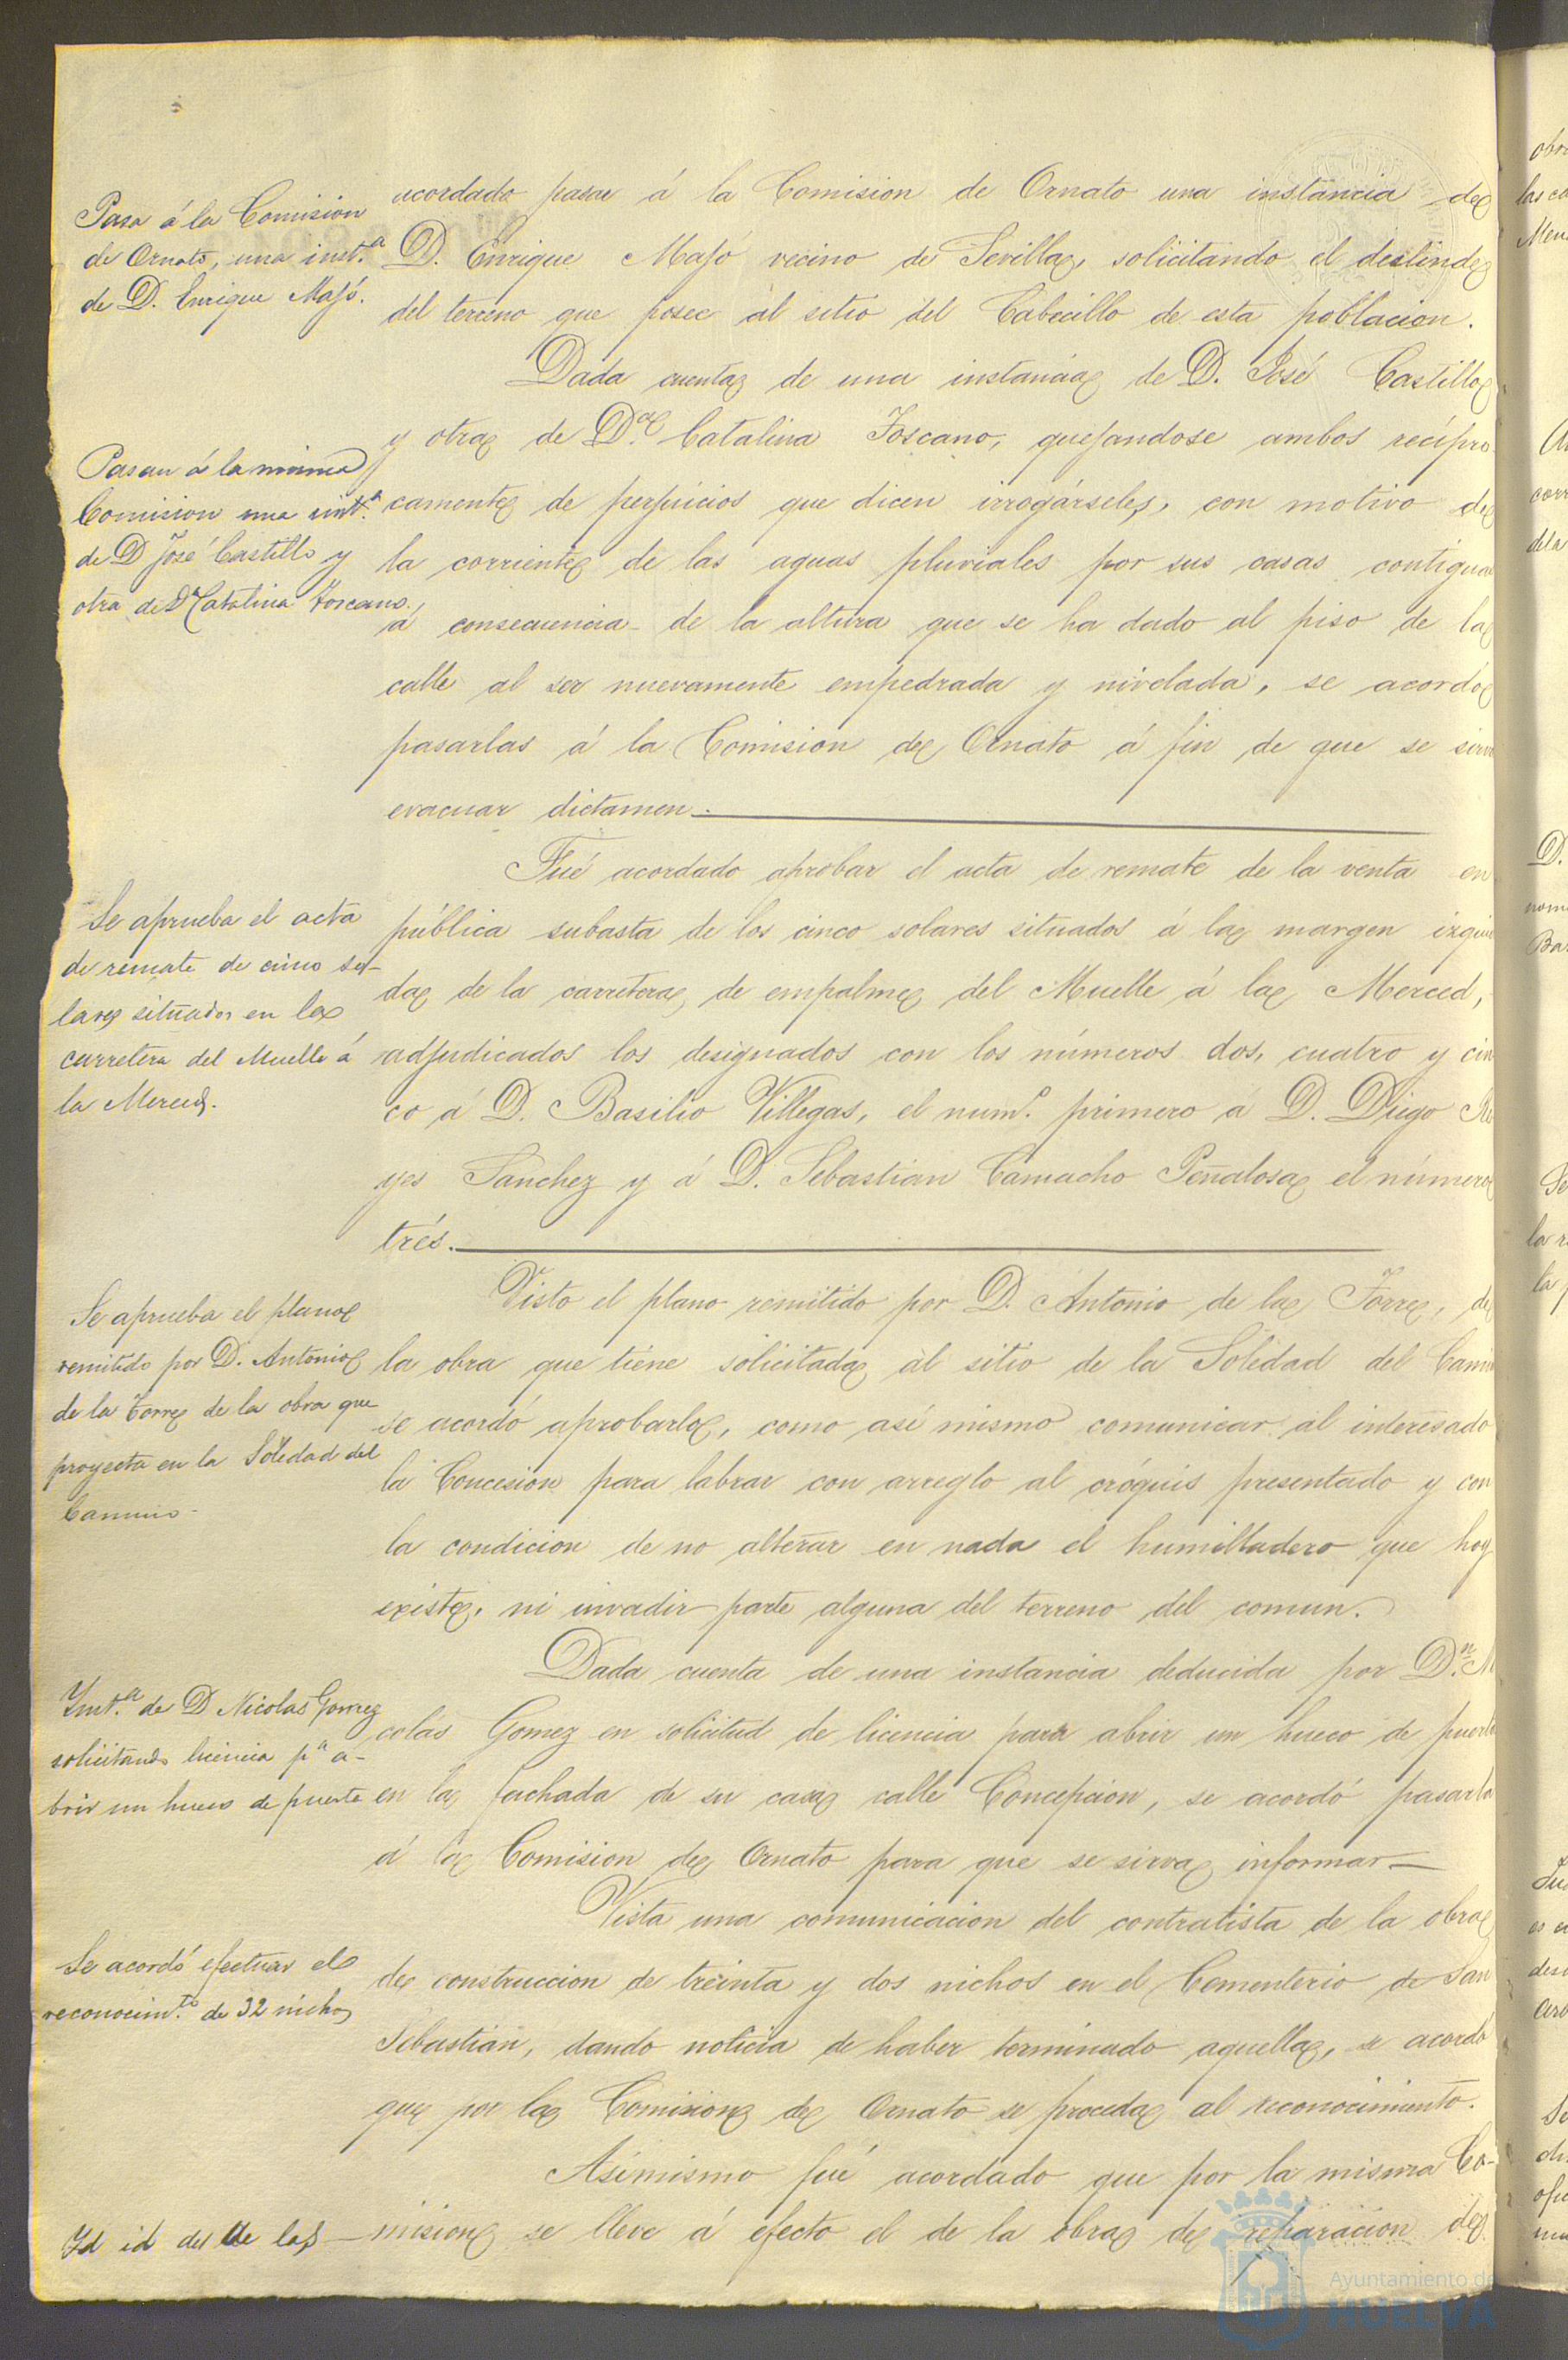 Pasa á la Comision
de Ornato, una inst.ª
de D. Enrique Masó.
acordado pasar á la Comision de Ornato una instancia de
D. Enrique Masó vecino de Sevilla, solicitando el deslinde
del terreno que posee al sitio del Cabecillo de esta poblacion.
Pasan á la misma
Comision una inst.ª
de D José Castillo y
otra de Dª Catalina Toscano.
Dada cuenta de una instancia de D. José Castillo
y otra de D.ª Catalina Toscano, quejandose ambos recípro
camente de perjuicios que dicen irrogárseles, con motivo de
la corriente de las aguas pluviales por sus casas contigua
á consecuencia de la altura que se ha dado al piso de la
calle al ser nuevamente empedrada y nivelada, se acordó
pasarlas á la Comision de Ornato á fin de que se sirv
evacuar dictamen.
Se aprueba el acta
de remate de cinco so-
lares situados en la
carretera del Muelle á
la Merced.
Fué acordado aprobar el acta de remate de la venta en
pública subasta de los cinco solares situados á la margen izquie
da de la carretera de empalme del Muelle á la Merced,
adjudicados los designados con los números dos, cuatro y cin
co á D. Basilio Villegas, el num.º primero á D. Diego Re
yes Sanchez y á D. Sebastian Camacho Peñalosa el número
trés.
Se aprueba el plano
remitido por D. Antonio
de la Torre de la obra que
proyecta en la Soledad del
Camino-
Visto el plano remitido por D. Antonio de la Torre, de
la obra que tiene solicitada al sitio de la Soledad del Cami
se acordó aprobarlo, como así mismo comunicar al interesado
la Concesion para labrar con arreglo al cróquis presentado y con
la condicion de no alterar en nada el humilladero que hoy
existe, ni invadir parte alguna del terreno del comun.
Inst.ª de D Nicolas Gomez
solicitando licencia pª a-
brir un hueco de puerta
Dada cuenta de una instancia deducida por D.n Ni
colás Gomez en solicitud de licencia para abrir un hueco de puerta
en la fachada de su casa calle Concepcion, se acordó pasarla
á la Comision de Ornato para que se sirva informar
Se acordó efectuar el
reconocim.to de 32 nichos
Vista una comunicacion del contratista de la obra
de construccion de treinta y dos nichos en el Cementerio de San
Sebastián, dando noticia de haber terminado aquella, se acordó
que por la Comision de Ornato se proceda al reconocimiento.
Id id del de las
Asimismo fué acordado que por la misma Co-
mision se lleve á efecto el de la obra de reparacion de
Ayuntamiento de
HUELVA